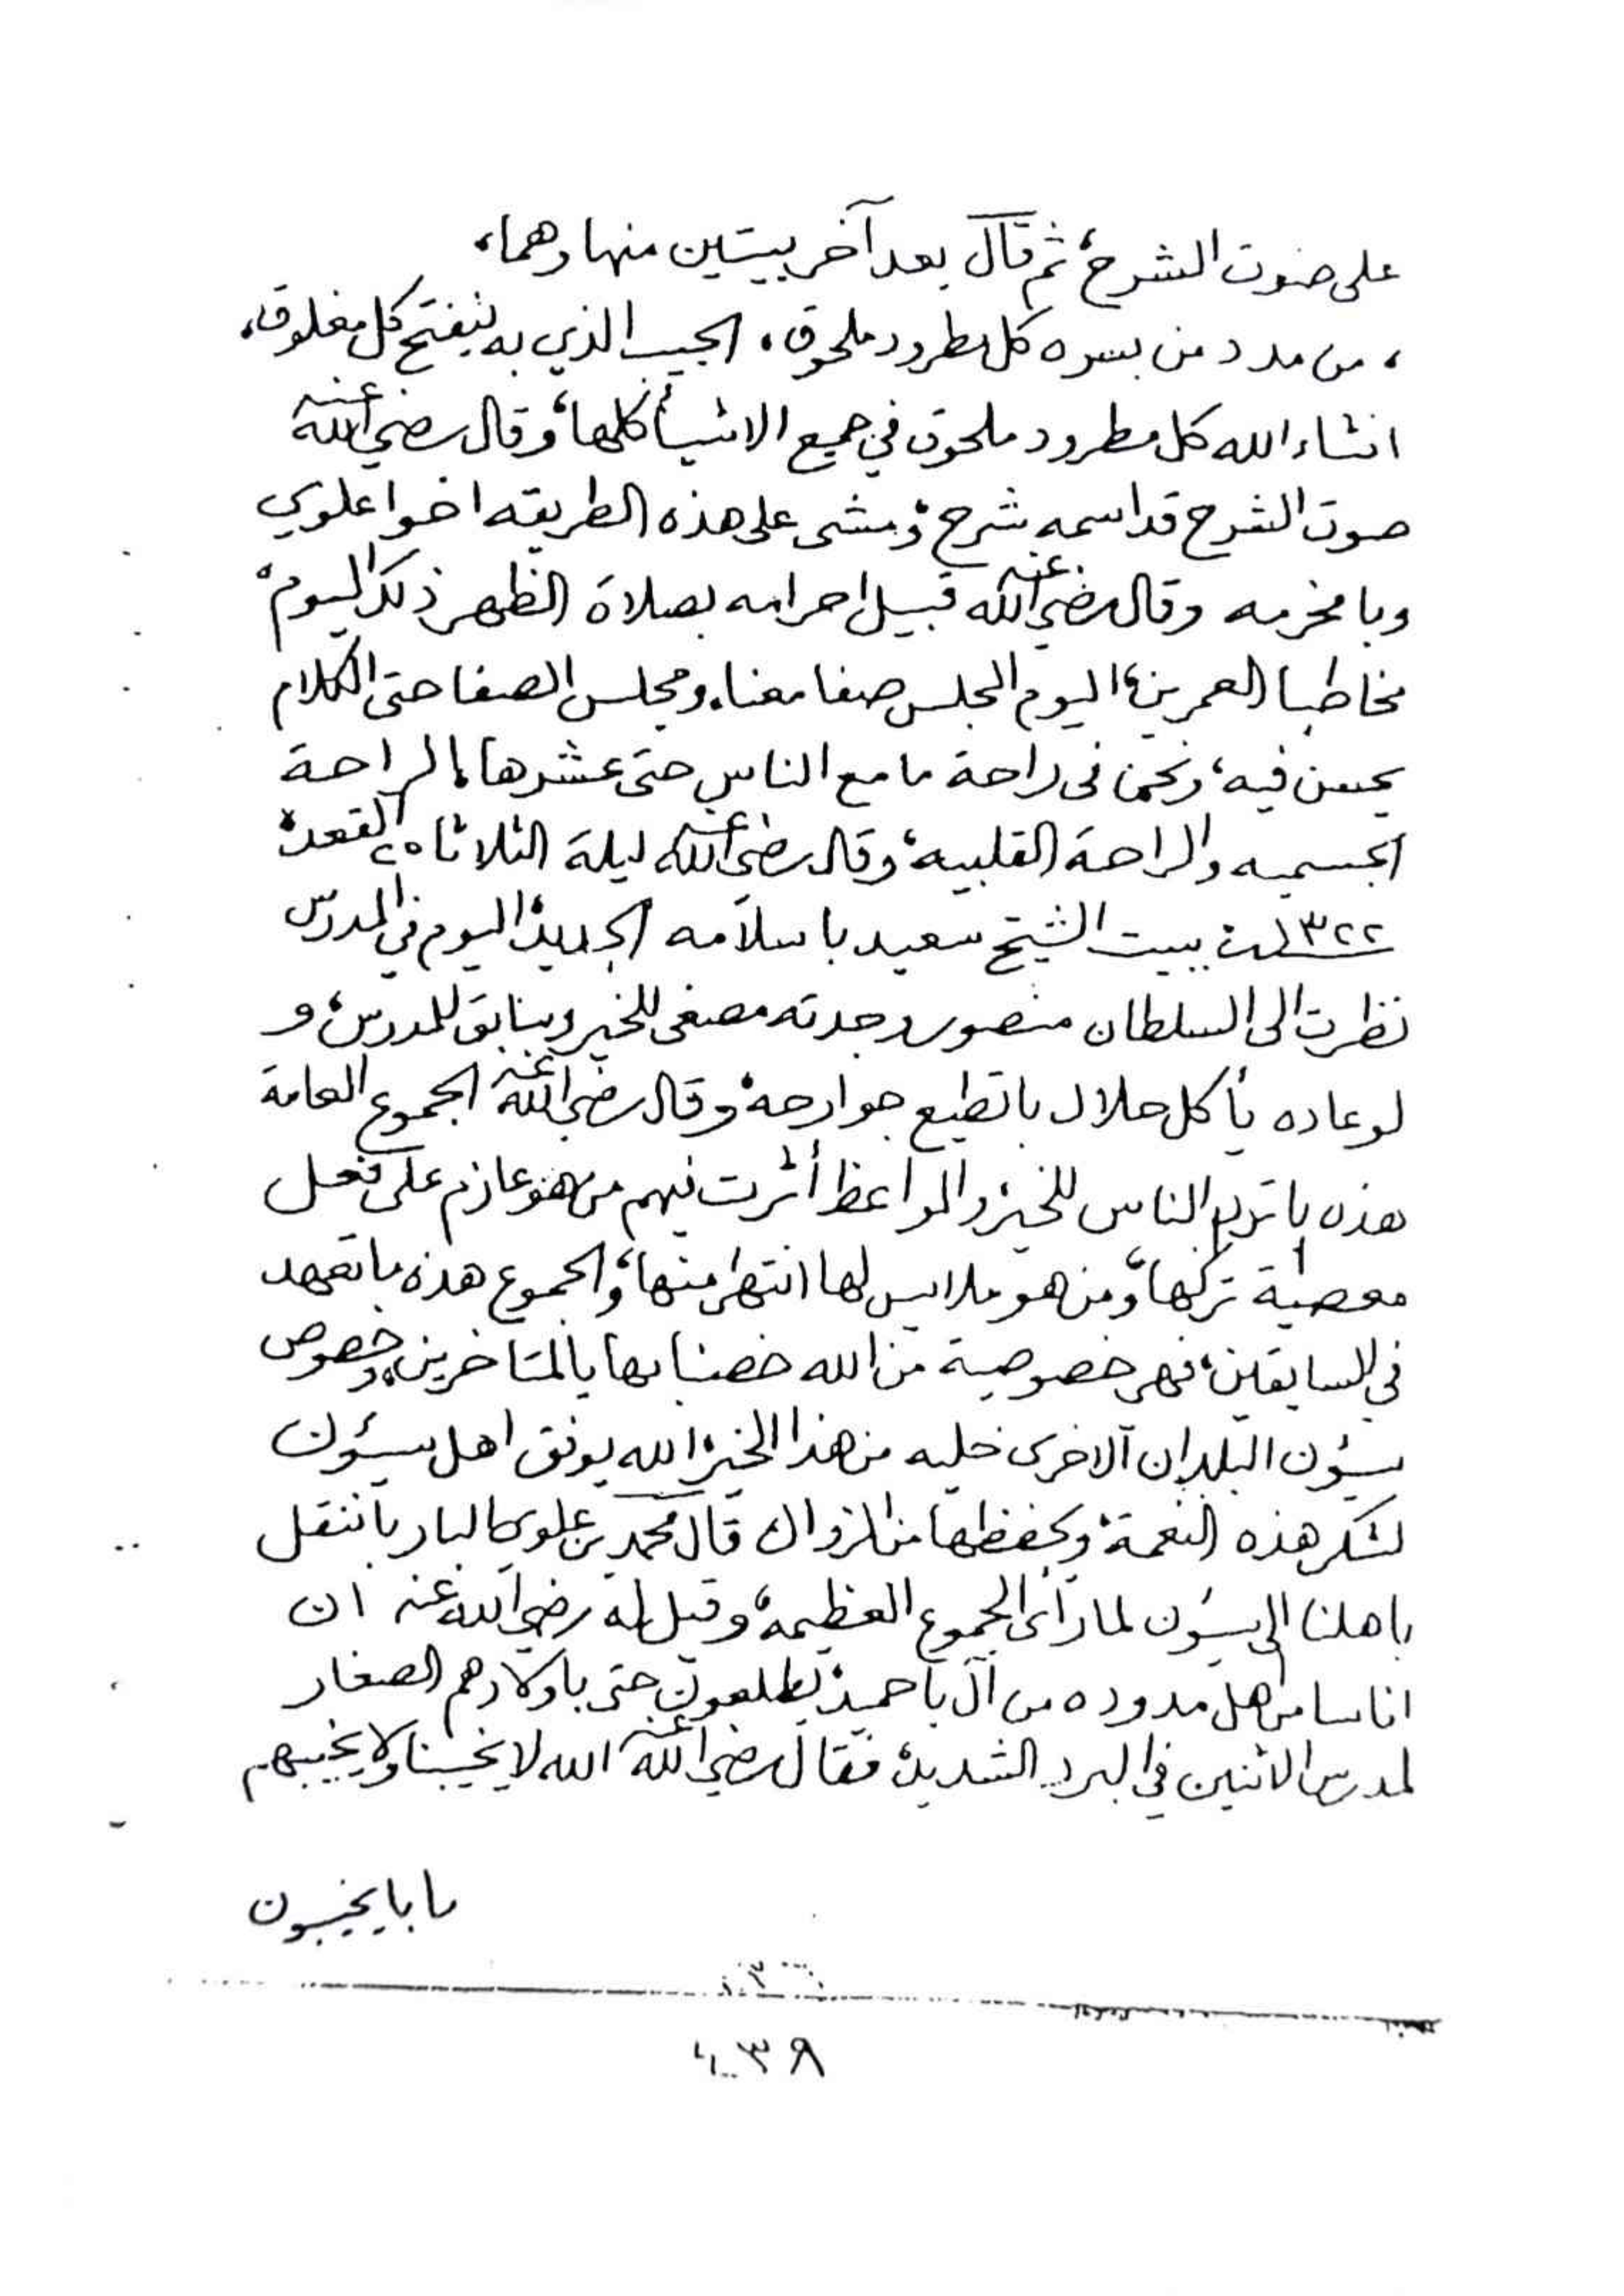 على صوت الشرح، ثم قال بعد آخر بيتين منها وهما،
، من مدد من بسره كل مطرود ملحوق، الحبيب الذي به ينفتح كل مغلوق،
انشاء الله كل مطرود ملحوق في جميع الاشيأ كلها، وقال رضي الله عنه
صوت الشرح قد اسمه شرح، ومشى على هذه الطريقه اخوا علوي
وبا مخرمه وقال رضي الله عنه قبيل احرامه بصلاة الظهر ذلك اليوم،
مخاطبا العمرين، اليوم المجلس صفا معنا، ومجلس الصفا حتى الكلام
يحسن فيه، ونحن في راحة ما مع الناس حتى عشرها، الراحة
الجسميه والراحة القلبيه، وقال رضي الله عنه ليلة الثلاثا ٢٥ القعدة
١٣٢٢ ببيت الشيخ سعيد با سلامه الجديد، اليوم في المدرس
نظرت الى السلطان منصور وجدته مصغى للخير ويبا يقع للمدرس، و
لو عاده يأكل حلال با تطيع جوارحه، وقال رضي الله عنه الجموع العامة
هذه با ترد الناس للخير، والمواعظ أثرت فيهم من هو عازم على فعل
معصية تركها، ومن هو ملابس لها انتهى منها، والجموع هذه ما تعهد
في السابقين، فهي خصوصية من الله خصنا بها يا المتاخرين، وخصوص
سيؤن البلدان الاخرى خليه من هذا الخير، الله يوفق اهل سيؤن
لشكر هذه النعمة، ويحفظها من الزوال قال محمد بن علوي البار با ننتقل
باهلنا الى سيؤن لما رأى الجموع العظيمه، وقيل له رضي الله عنه ان
اناسا من اهل مدوده من آل با حميد، يطلعون حتى باولادهم الصغار
لمدرس الاثنين في البرد الشديد، فقال رضي الله عنه الله لا يخيبنا ولا يخيبهم
ما با يخيبون
٤٣٩